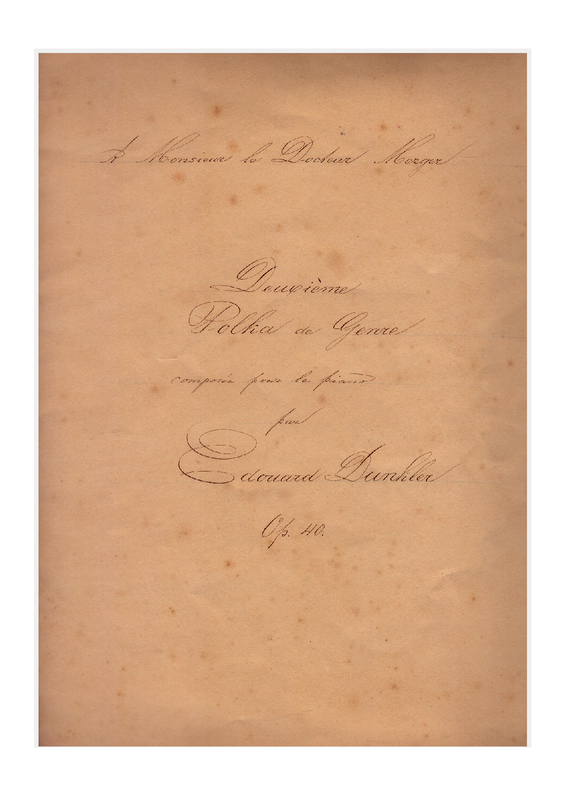 A Monsieur le Docteur Merger
Deuxième
Polka de Genre
composée pour le piano
par
Edouard Dunkler
Op. 40.